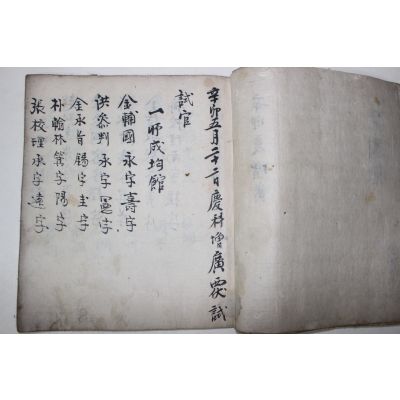 辛卯五月二十二日慶科增廣覆試
試官
一所成均館
金輔國永字壽字
洪參判承字憲字
金承旨錫字圭字
朴翰林箕字陽字
張校理承字遠字